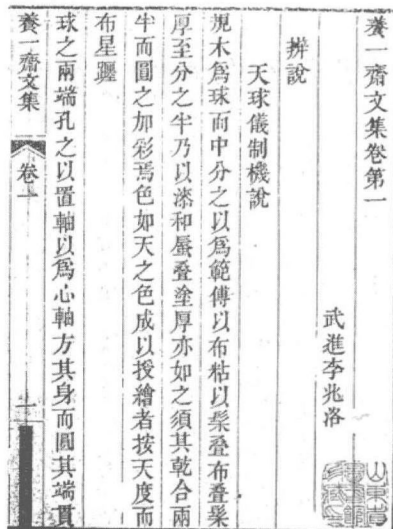 養一齋文集卷第一
武進李兆洛
辨說
天球儀制機說
規木爲球而中分之以爲範傅以布粘以髹疊布疊髹
厚至分之半乃以漆和蜃疊塗厚亦如之須其乾合兩
半而圓之加彩焉色如天之色成以授繪者按天度而
布星躔
球之兩端孔之以置軸以爲心軸方其身而圓其端貫
養一齋文集
卷一
一